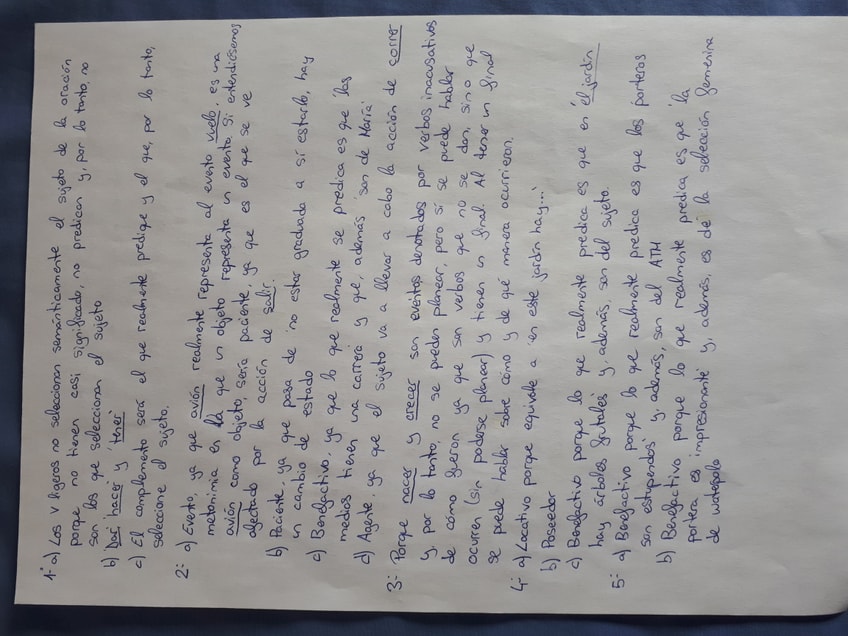 1- a) Los V ligeros no seleccionan semánticamente el sujeto de la oración
porque no tienen casi significado, no predican y, por lo tanto, no
son los que seleccionan el sujeto
b) Dar, hacer y tener
c) El complemento será el que realmente predique y el que, por lo tanto,
seleccione el sujeto.
2- a) Evento, ya que avión realmente representa al evento vuelo, es una
metonimia en la que un objeto representa un evento. Si entendiésemos
avión como objeto, sería paciente, ya que es el que se ve
afectado por la acción de salir.
b) Paciente, ya que pasa de no estar graduada a sí estarlo, hay
un cambio de estado
c) Benefactivo, ya que lo que realmente se predica es que las
medias tienen una carrera y que, además son de María
d) Agente, ya que el sujeto va a llevar a cabo la acción de correr
3- Porque nacer y crecer son eventos denotados por verbos inacusativos
y, por lo tanto, no se pueden planear, pero sí se puede hablar
de cómo fueron ya que son verbos que no se dan, sino que
ocurren (sin poderse planear) y tienen un final. Al tener un final
se puede hablar sobre cómo y de qué manera ocurrieron.
4- a) Locativo porque equivale a 'en este jardín hay...'
b) Poseedor
c) Benefactivo porque lo que realmente predica es que en el jardín
hay árboles frutales y además, son del sujeto.
5- a) Benefactivo porque lo que realmente predica es que los porteros
son estupendos y, además, son del ATM
b) Benefactivo porque lo que realmente predica es que la
portera es impresionante y, además, es de la selección femenina
de waterpolo